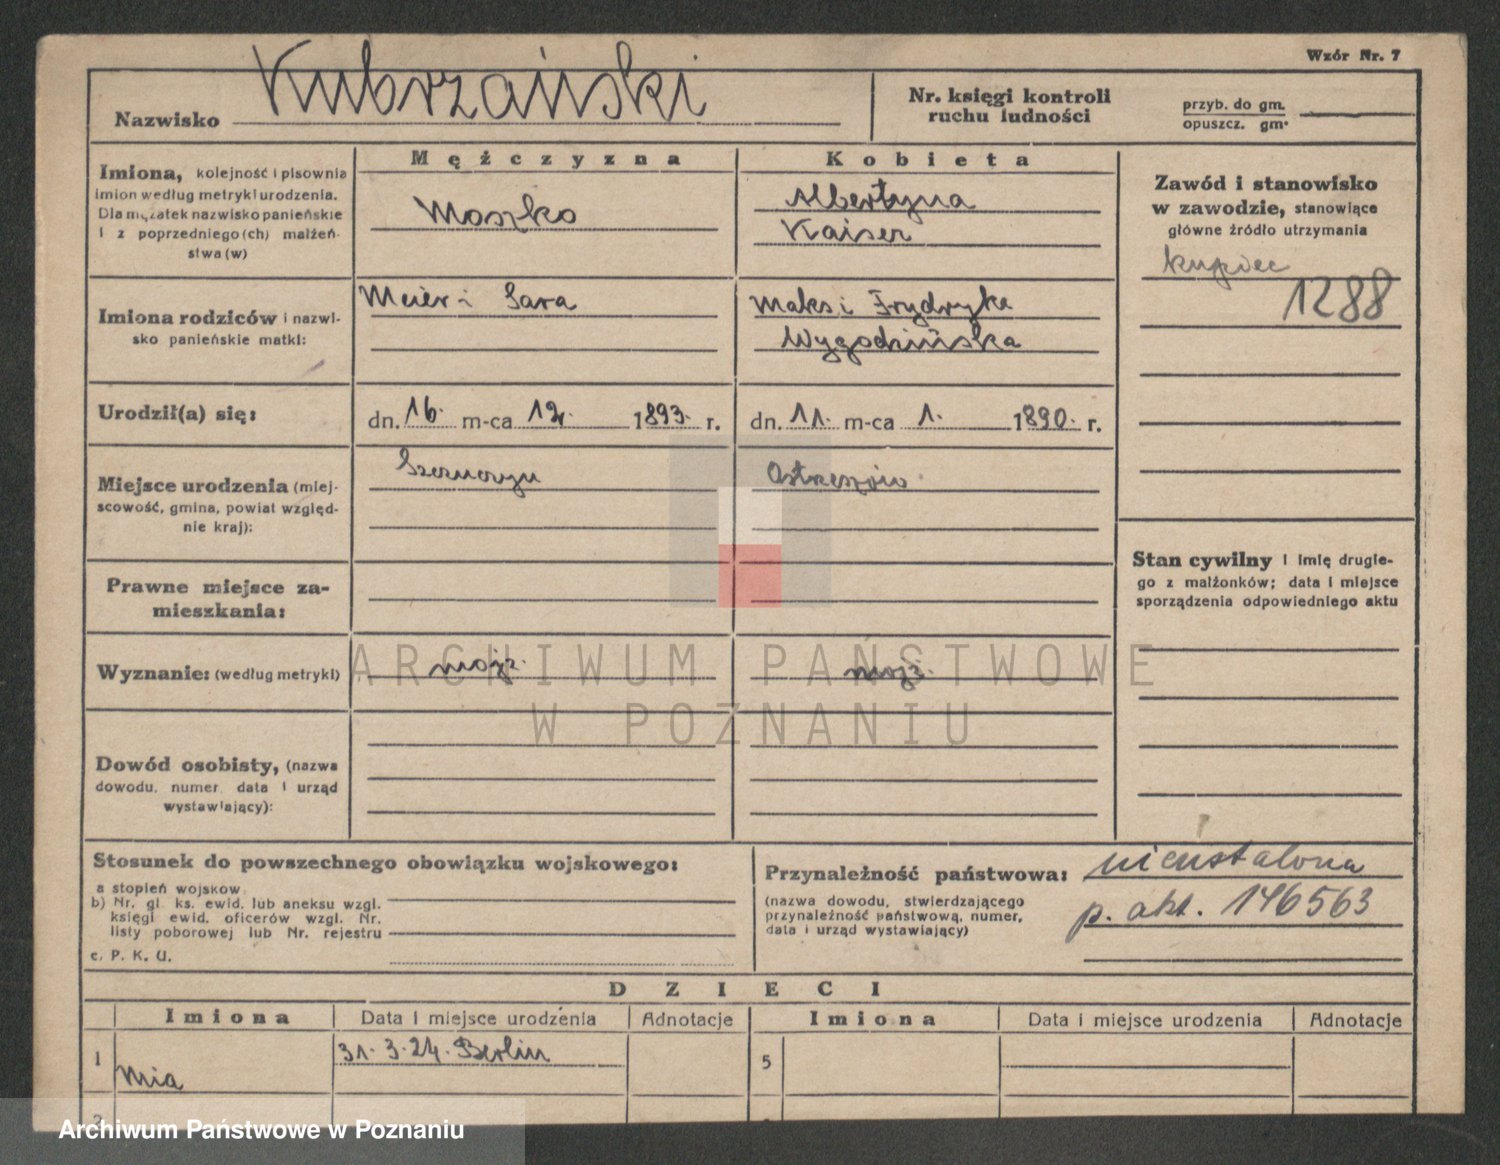 Wzór Nr. 7
Nazwisko Kubrzański
Nr. księgi kontroli
ruchu ludności
przyb. do gm.
opuszcz. gm.
Imiona, kolejność i pisownia
imion według metryki urodzenia.
Dla mężatek nazwisko panieńskie
i z poprzedniego (ch) małżeń-
stwa (w)
Mężczyzna
Moszko
Kobieta
Albertyna
Kaiser
Zawód i stanowisko
w zawodzie, stanowiące
główne źródło utrzymania
kupiec
1288
Imiona rodziców i nazwi-
sko panieńskie matki:
Meier i Sara
Maks i Frydryka
Wygodzińska
Urodził(a) się:
dn. 16. m-ca 12. 1893. r.
dn. 11. m-ca 1. 1890. r.
Miejsce urodzenia (miej-
scowość, gmina, powiat względ-
nie kraj):
Ostrzeszów
Prawne miejsce za-
mieszkania:
Stan cywilny i imię drugie-
go z małżonków; data i miejsce
sporządzenia odpowiedniego aktu
Wyznanie: (według metryki)
mojż.
mojż.
ARCHIWUM PAŃSTWOWE
W POZNANIU
Dowód osobisty, (nazwa
dowodu, numer, data i urząd
wystawiający):
Stosunek do powszechnego obowiązku wojskowego:
a stopień wojskow.
b) Nr. gł. ks. ewid. lub aneksu wzgl.
księgi ewid. oficerów wzgl. Nr.
listy poborowej lub Nr. rejestru
c. P. K. U.
Przynależność państwowa:
(nazwa dowodu, stwierdzającego
przynależność państwową, numer,
data i urząd wystawiający)
nieustalona
p. akt. 146563
DZIECI
Imiona
Data i miejsce urodzenia
Adnotacje
Imiona
Data i miejsce urodzenia
Adnotacje
1
Mia
31. 3. 24. Berlin
5
2
Archiwum Państwowe w Poznaniu